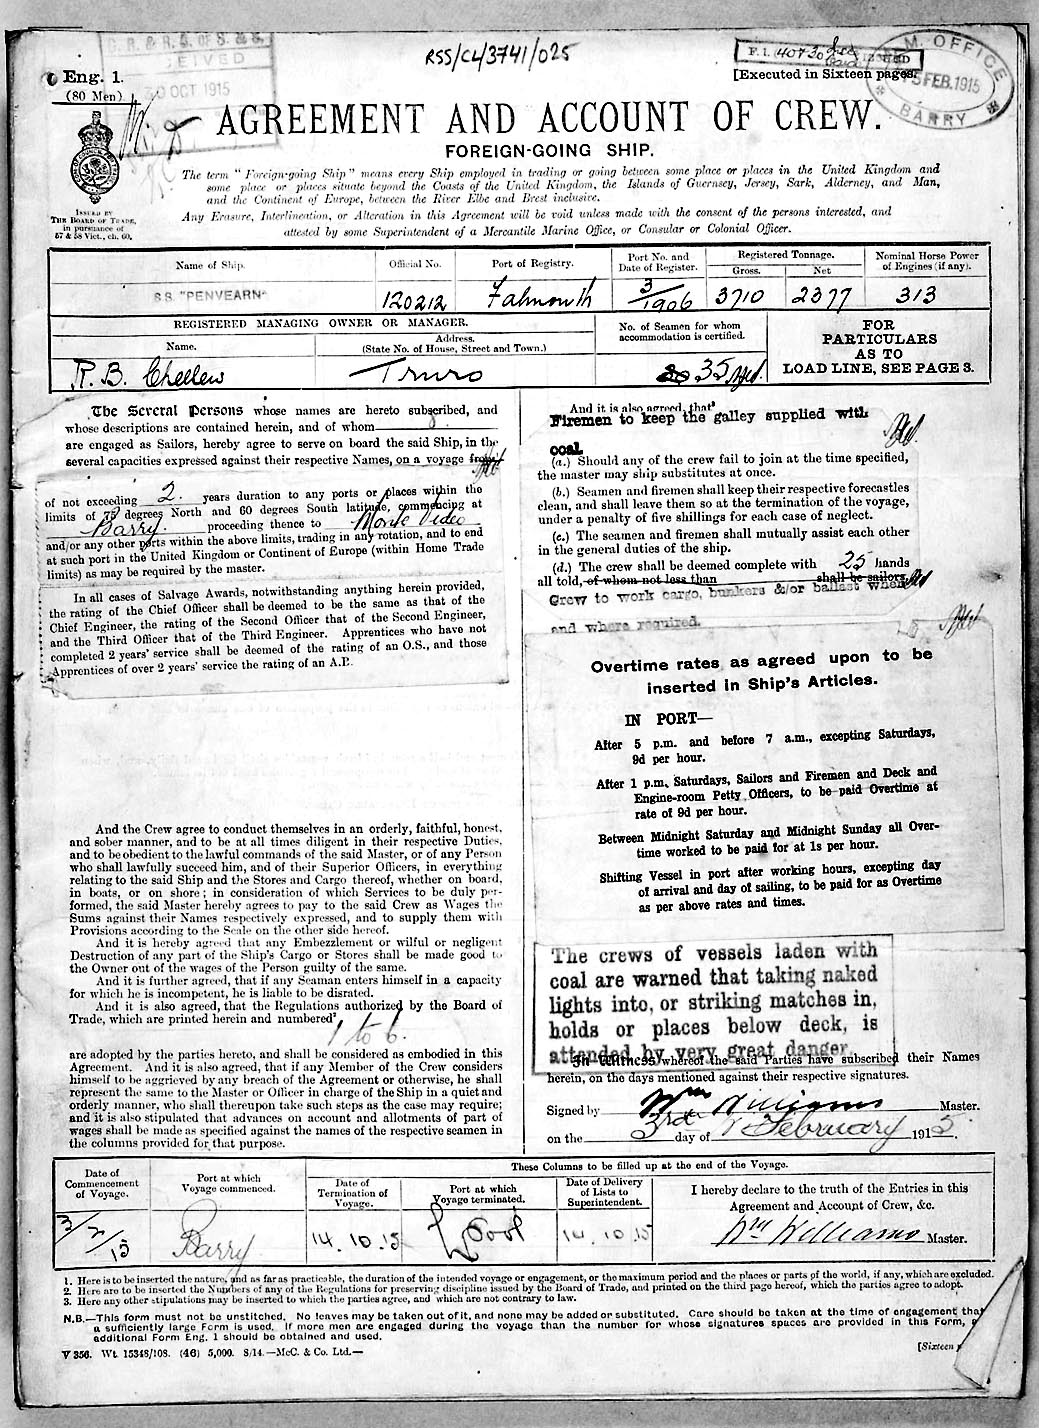 RSS/CL/3741/025
RECEIVED
30 OCT 1915
F. 1. 40730
M.M. OFFICE
5 FEB. 1915
BARRY
Eng. 1.
(80 Men)
[Executed in Sixteen pages.
AGREEMENT AND ACCOUNT OF CREW.
FOREIGN-GOING SHIP.
ISSUED BY
THE BOARD OF TRADE,
in pursuance of
57 & 58 Vict., ch. 60.
The term "Foreign-going Ship" means every Ship employed in trading or going between some place or places in the United Kingdom and
some place or places situate beyond the Coasts of the United Kingdom, the Islands of Guernsey, Jersey, Sark, Alderney, and Man,
and the Continent of Europe, between the River Elbe and Brest inclusive.
Any Erasure, Interlineation, or Alteration in this Agreement will be void unless made with the consent of the persons interested, and
attested by some Superintendent of a Mercantile Marine Office, or Consular or Colonial Officer.
Name of Ship.
Official No.
Port of Registry.
Port No. and
Date of Register.
Registered Tonnage.
Gross.
Net
Nominal Horse Power
of Engines (if any).
S.S. "PENVEARN"
120212
Falmouth
3/1906
3710
2377
313
REGISTERED MANAGING OWNER OR MANAGER.
Name.
Address.
(State No. of House, Street and Town.)
No. of Seamen for whom
accommodation is certified.
FOR
PARTICULARS
AS TO
LOAD LINE, SEE PAGE 3.
R. B. Chellew
Truro
35
The Several Persons whose names are hereto subscribed, and
whose descriptions are contained herein, and of whom
are engaged as Sailors, hereby agree to serve on board the said Ship, in the
several capacities expressed against their respective Names, on a voyage from
of not exceeding 2 years duration to any ports or places within the
limits of 75 degrees North and 60 degrees South latitude, commencing at
Barry. proceeding thence to Monte Video
and/or any other ports within the above limits, trading in any rotation, and to end
at such port in the United Kingdom or Continent of Europe (within Home Trade
limits) as may be required by the master.
In all cases of Salvage Awards, notwithstanding anything herein provided,
the rating of the Chief Officer shall be deemed to be the same as that of the
Chief Engineer, the rating of the Second Officer that of the Second Engineer,
and the Third Officer that of the Third Engineer. Apprentices who have not
completed 2 years' service shall be deemed of the rating of an O.S., and those
Apprentices of over 2 years' service the rating of an A.B.
And the Crew agree to conduct themselves in an orderly, faithful, honest,
and sober manner, and to be at all times diligent in their respective Duties,
and to be obedient to the lawful commands of the said Master, or of any Person
who shall lawfully succeed him, and of their Superior Officers, in everything
relating to the said Ship and the Stores and Cargo thereof, whether on board,
in boats, or on shore; in consideration of which Services to be duly per-
formed, the said Master hereby agrees to pay to the said Crew as Wages the
Sums against their Names respectively expressed, and to supply them with
Provisions according to the Scale on the other side hereof.
And it is hereby agreed that any Embezzlement or wilful or negligent
Destruction of any part of the Ship's Cargo or Stores shall be made good to
the Owner out of the wages of the Person guilty of the same.
And it is further agreed, that if any Seaman enters himself in a capacity
for which he is incompetent, he is liable to be disrated.
And it is also agreed, that the Regulations authorized by the Board of
Trade, which are printed herein and numbered²
1 to 6.
are adopted by the parties hereto, and shall be considered as embodied in this
Agreement. And it is also agreed, that if any Member of the Crew considers
himself to be aggrieved by any breach of the Agreement or otherwise, he shall
represent the same to the Master or Officer in charge of the Ship in a quiet and
orderly manner, who shall thereupon take such steps as the case may require;
and it is also stipulated that advances on account and allotments of part of
wages shall be made as specified against the names of the respective seamen in
the columns provided for that purpose.
And it is also agreed, that³
Firemen to keep the galley supplied with
coal.
(a.) Should any of the crew fail to join at the time specified,
the master may ship substitutes at once.
(b.) Seamen and firemen shall keep their respective forecastles
clean, and shall leave them so at the termination of the voyage,
under a penalty of five shillings for each case of neglect.
(c.) The seamen and firemen shall mutually assist each other
in the general duties of the ship.
(d.) The crew shall be deemed complete with 25 hands
all told, of whom not less than shall be sailors.
Crew to work cargo, bunkers &/or ballast when
and where required.
Overtime rates as agreed upon to be
inserted in Ship's Articles.
IN PORT—
After 5 p.m. and before 7 a.m., excepting Saturdays,
9d per hour.
After 1 p.m. Saturdays, Sailors and Firemen and Deck and
Engine-room Petty Officers, to be paid Overtime at
rate of 9d per hour.
Between Midnight Saturday and Midnight Sunday all Over-
time worked to be paid for at 1s per hour.
Shifting Vessel in port after working hours, excepting day
of arrival and day of sailing, to be paid for as Overtime
as per above rates and times.
The crews of vessels laden with
coal are warned that taking naked
lights into, or striking matches in,
holds or places below deck, is
attended by very great danger.
In Witness whereof the said Parties have subscribed their Names
herein, on the days mentioned against their respective signatures.
Signed by Wm Williams Master.
on the 3rd day of February 1915.
Date of
Commencement
of Voyage.
Port at which
Voyage commenced.
These Columns to be filled up at the end of the Voyage.
Date of
Termination of
Voyage.
Port at which
Voyage terminated.
Date of Delivery
of Lists to
Superintendent.
I hereby declare to the truth of the Entries in this
Agreement and Account of Crew, &c.
3/2/15
Barry
14.10.15
L'Pool
14.10.15
Wm Williams Master.
1. Here is to be inserted the nature, and as far as practicable, the duration of the intended voyage or engagement, or the maximum period and the places or parts of the world, if any, which are excluded.
2. Here are to be inserted the Numbers of any of the Regulations for preserving discipline issued by the Board of Trade, and printed on the third page hereof, which the parties agree to adopt.
3. Here any other stipulations may be inserted to which the parties agree, and which are not contrary to law.
N.B.—This form must not be unstitched. No leaves may be taken out of it, and none may be added or substituted. Care should be taken at the time of engagement that
a sufficiently large Form is used. If more men are engaged during the voyage than the number for whose signatures spaces are provided in this Form,
additional Form Eng. 1 should be obtained and used.
V 356. Wt. 15348/108. (46) 5,000. 8/14.—McC. & Co. Ltd.—
[Sixteen